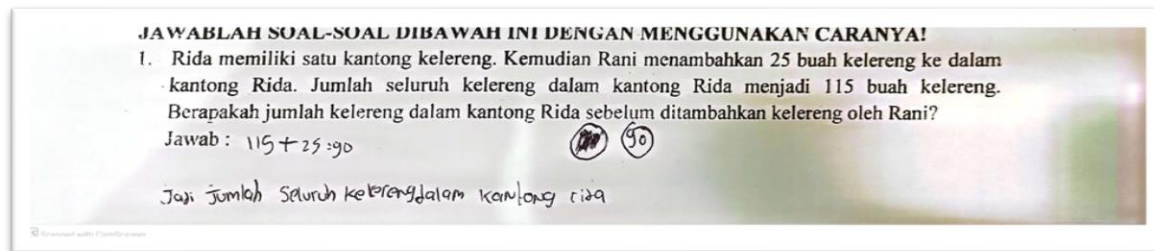 JAWABLAH SOAL-SOAL DIBAWAH INI DENGAN MENGGUNAKAN CARANYA!
1. Rida memiliki satu kantong kelereng. Kemudian Rani menambahkan 25 buah kelereng ke dalam
kantong Rida. Jumlah seluruh kelereng dalam kantong Rida menjadi 115 buah kelereng.
Berapakah jumlah kelereng dalam kantong Rida sebelum ditambahkan kelereng oleh Rani?
Jawab : 115+25=90 90
Jadi Jumlah Seluruh kelereng dalam kantong rida
Scanned with CamScanner